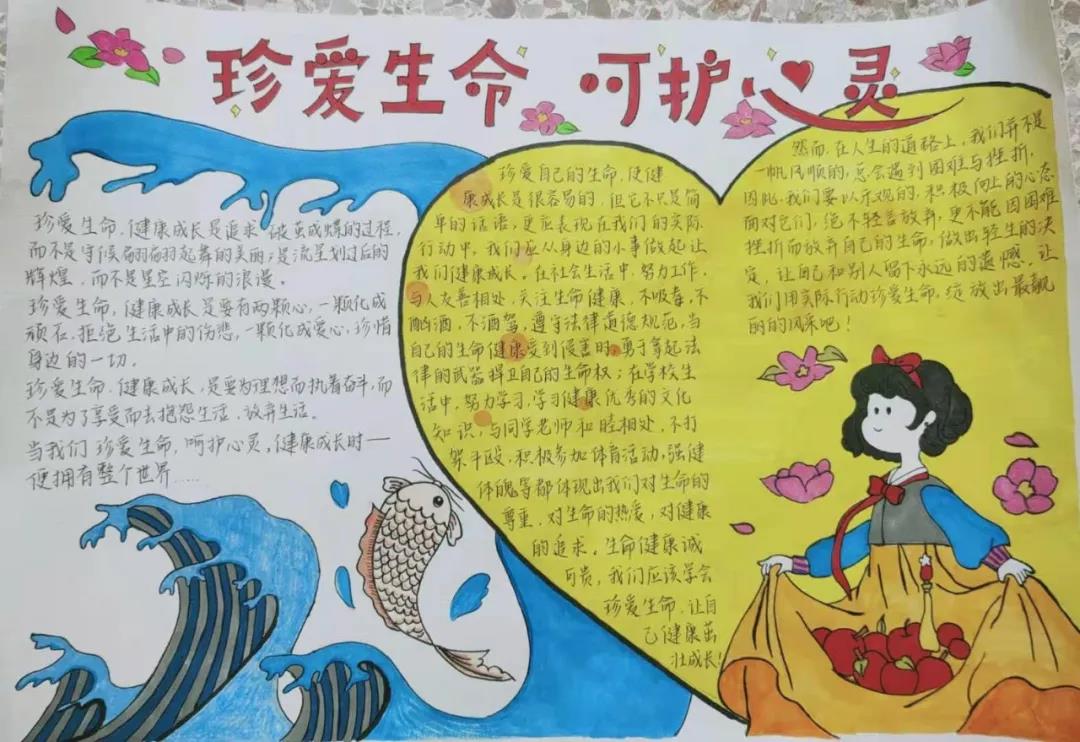 珍爱生命 呵护心灵
珍爱生命、健康成长是追求破茧成蝶的过程,
而不是守候翩翩起舞的美丽;是流星划过后的
辉煌,而不是星空闪烁的浪漫。
珍爱生命,健康成长是要有两颗心,一颗化成
顽石,拒绝生活中的伤悲,一颗化成爱心,珍惜
身边的一切。
珍爱生命、健康成长,是要为理想而执着奋斗,而
不是为了享受而去抱怨生活,放弃生活。
当我们珍爱生命,呵护心灵,健康成长时一
便拥有整个世界.....
珍爱自己的生命,使健
康成长是很容易的,但它不只是简
单的话语,更应表现在我们的实际
行动中,我们应从身边的小事做起让
我们健康成长。在社会生活中,努力工作,
与人友善相处,关注生命健康,不吸毒,不
酗酒,不酒驾,遵守法律道德规范,当
自己的生命健康受到侵害时,勇于拿起法
律的武器捍卫自己的生命权;在学校生
活中,努力学习,学习健康优秀的文化
知识,与同学老师和睦相处,不打
架斗殴,积极参加体育活动,强健
体魄等都体现出我们对生命的
尊重,对生命的热爱,对健康
的追求。生命健康诚
可贵,我们应该学会
珍爱生命,让自
己健康茁
壮成长!
然而,在人生的道路上,我们并不是
一帆风顺的,总会遇到困难与挫折,
因此,我们要以乐观的,积极向上的心态
面对它们,绝不轻言放弃,更不能因困难
挫折而放弃自己的生命,做出轻生的决
定,让自己和别人留下永远的遗憾,让
我们用实际行动珍爱生命,绽放出最靓
丽的风采吧!